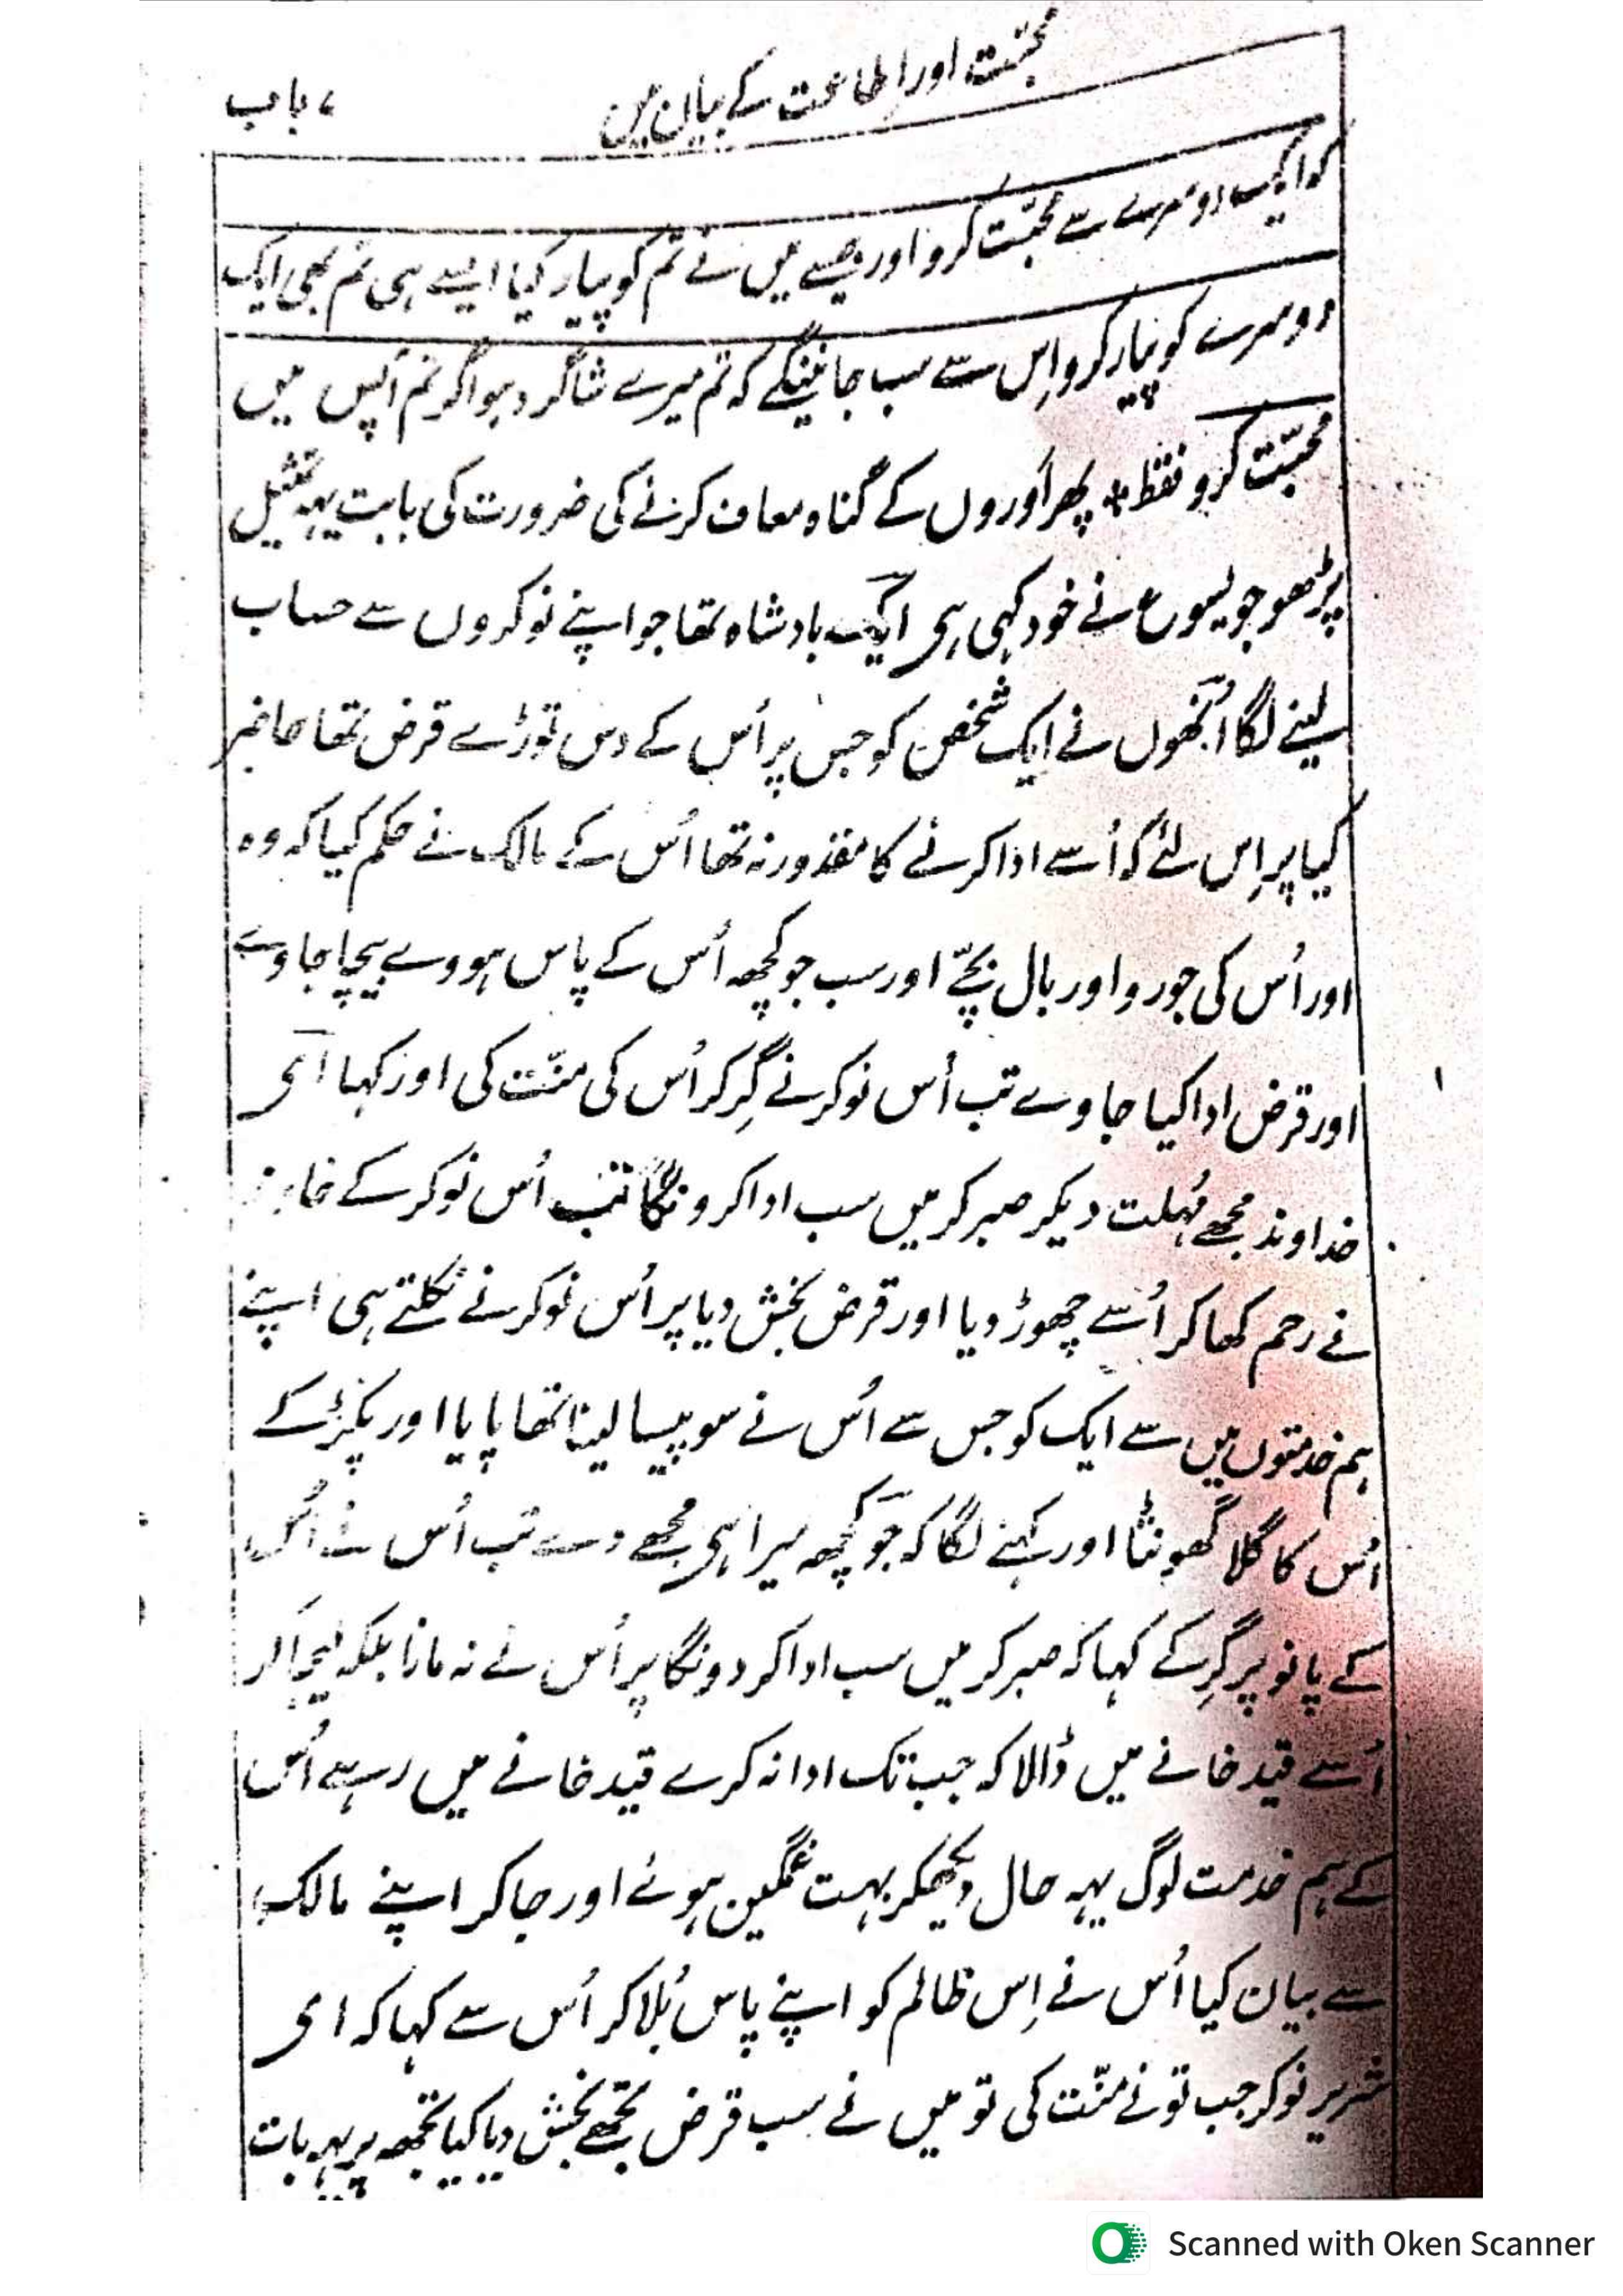 محبّت اور اطاعت کے بیان میں
۷ باب
کہ ایک دوسرے سے محبّت کرو اور جیسے میں نے تم کو پیار کیا ایسے ہی تم بھی ایک
دوسرے کو پیار کرو اِس سے سب جانینگے کہ تم میرے شاگرد ہو اگر تم آپس میں
محبّت کرو فقط * پھر اَوروں کے گناہ معاف کرنے کی ضرورت کی بابت یہہ تمثیل
پڑھو جو یسوع نے خود کہی ہی ایک بادشاہ تھا جو اپنے نوکروں سے حساب
لینے لگا اُنھوں نے ایک شخص کو جس پر اُس کے دس توڑے قرض تھا حاضر
کیا پر اِس لئے کہ اُسے ادا کرنے کا مقدور نہ تھا اُس کے مالک نے حکم کیا کہ وہ
اور اُس کی جورو اور بال بچّے اور سب جو کچھہ اُس کے پاس ہووے بیچا جاوے
اور قرض ادا کیا جاوے تب اُس نوکر نے گِر کر اُس کی منّت کی اور کہا ای
خداوند مجھے مُہلت دیکر صبر کر میں سب ادا کرونگا تب اُس نوکر کے
نے رحم کھا کر اُسے چھوڑ دیا اور قرض بخش دیا پر اُس نوکر نے نکلتے ہی اپنے
ہم خدمتوں میں سے ایک کو جس سے اُس نے سو پیسا لینا تھا پایا اور پکڑ کے
اُس کا گلا گھونٹا اور کہنے لگا کہ جو کچھہ میرا ہی مجھے دے تب اُس نے اُس
کے پانو پر گِر کے کہا کہ صبر کر میں سب ادا کر دونگا پر اُس نے نہ مانا بلکہ لیجا کر
اُسے قید خانے میں ڈالا کہ جب تک ادا نہ کرے قید خانے میں رہے اُس
کے ہم خدمت لوگ یہہ حال دیکھکر بہت غمگین ہوئے اور جا کر اپنے مالک
سے بیان کیا اُس نے اِس ظالم کو اپنے پاس بُلا کر اُس سے کہا کہ ای
شریر نوکر جب تو نے منّت کی تو میں نے سب قرض تجھے بخش دیا کیا تجھہ پر یہہ بات
Scanned with Oken Scanner